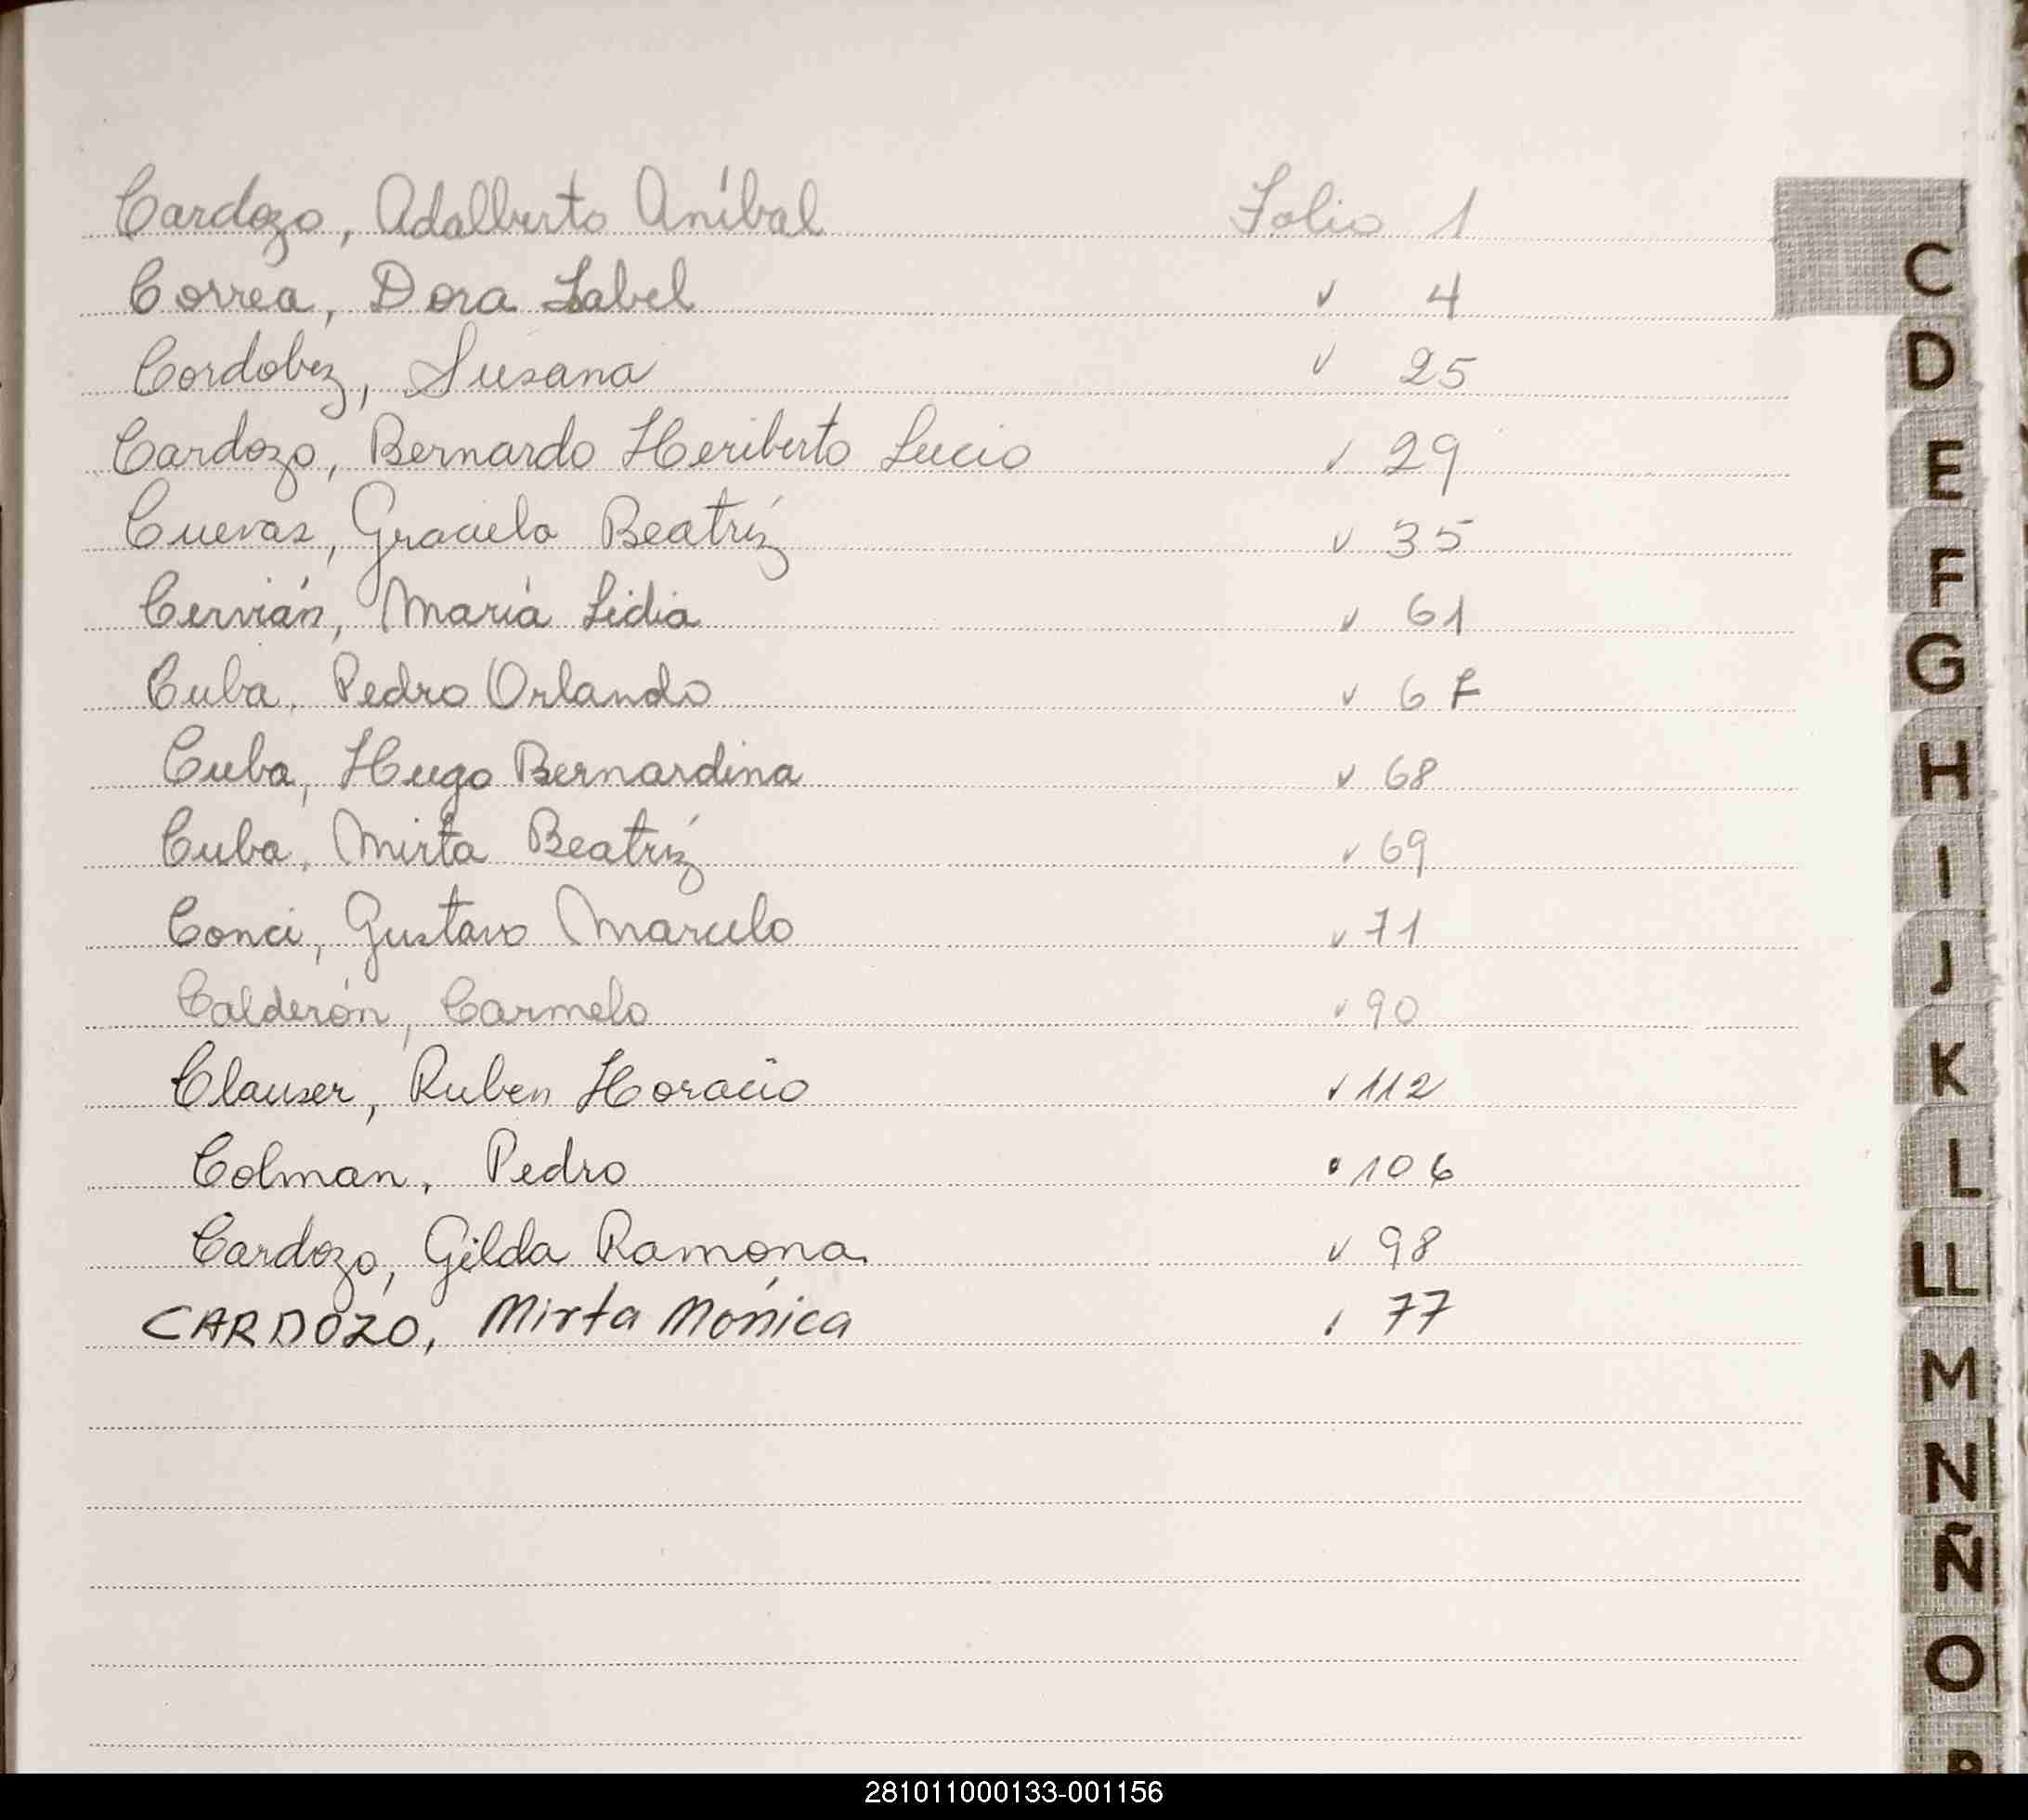 Cardozo, Adalberto Aníbal Folio 1
Correa, Dora Isabel " 4
Cordobez, Susana " 25
Cardozo, Bernardo Heriberto Lucio " 29
Cuevas, Graciela Beatríz " 35
Cervián, María Lidia " 61
Cuba, Pedro Orlando " 67
Cuba, Hugo Bernardina " 68
Cuba, Mirta Beatríz " 69
Conci, Gustavo Marcelo " 71
Calderón, Carmelo " 90
Clauser, Ruben Horacio " 112
Colman, Pedro " 106
Cardozo, Gilda Ramona " 98
CARDOZO, Mirta Mónica " 77
C
D
E
F
G
H
I
J
K
L
LL
M
N
Ñ
O
281011000133-001156